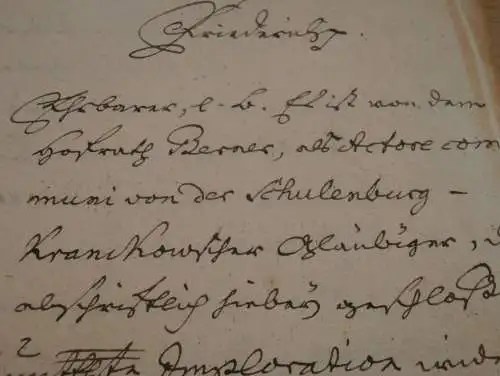 Friderich p.
Ehrbarer, l. b. Es ist von dem
Hofrath Berner, als Actore com
muni von der Schulenburg-
Kranckowscher Gläubiger,
abschriftlich hiebey geschloß
2
Imploration wide